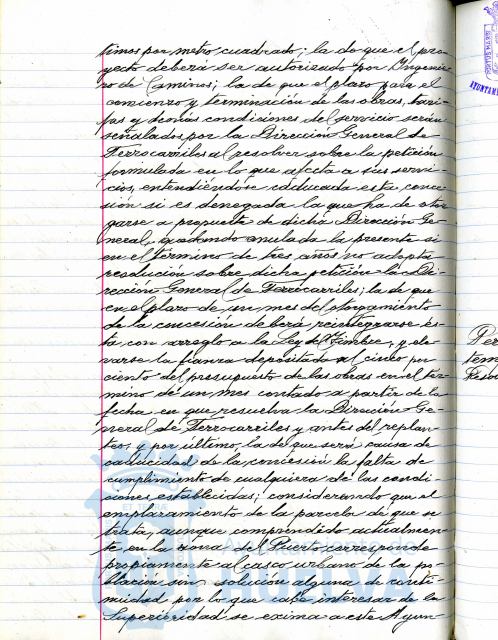 timos por metro cuadrado; la de que el pro-
yecto deberá ser autorizado por Ingenie-
ro de Caminos; la de que el plazo para el
comienzo y terminación de las obras, tari-
fas y demás condiciones del servicio serán
señalados por la Dirección General de
Ferrocarriles al resolver sobre la petición
formulada en lo que afecta a tus servi-
cios, entendiéndose caducada esta conce-
sión si es denegada la que ha de otor-
garse a propuesta de dicha Dirección Ge-
neral, quedando anulada la presente si
en el término de tres años no adopta
resolución sobre dicha petición la Di-
rección General de Ferrocarriles; la de que
en el plazo de un mes del otorgamiento
de la concesión deberá reintegrarse és-
ta con arreglo a la Ley del Timbre, y ele-
varse la fianza depositada al cinco por
ciento del presupuesto de las obras en el tér-
mino de un mes contado a partir de la
fecha en que resuelva la Dirección Ge-
neral de Ferrocarriles y antes del replan-
teo, y por último, la de que será causa de
caducidad de la concesión la falta de
cumplimiento de cualquiera de las condi-
ciones establecidas; considerando que el
emplazamiento de la parcela de que se
trata, aunque comprendido actualmen-
te en la zona del Puerto corresponde
propiamente al casco urbano de la po-
blación sin solución alguna de conti-
nuidad por lo que cabe interesar de la
Superioridad se exima a este Ayun-
Ayuntamiento de
HUELVA